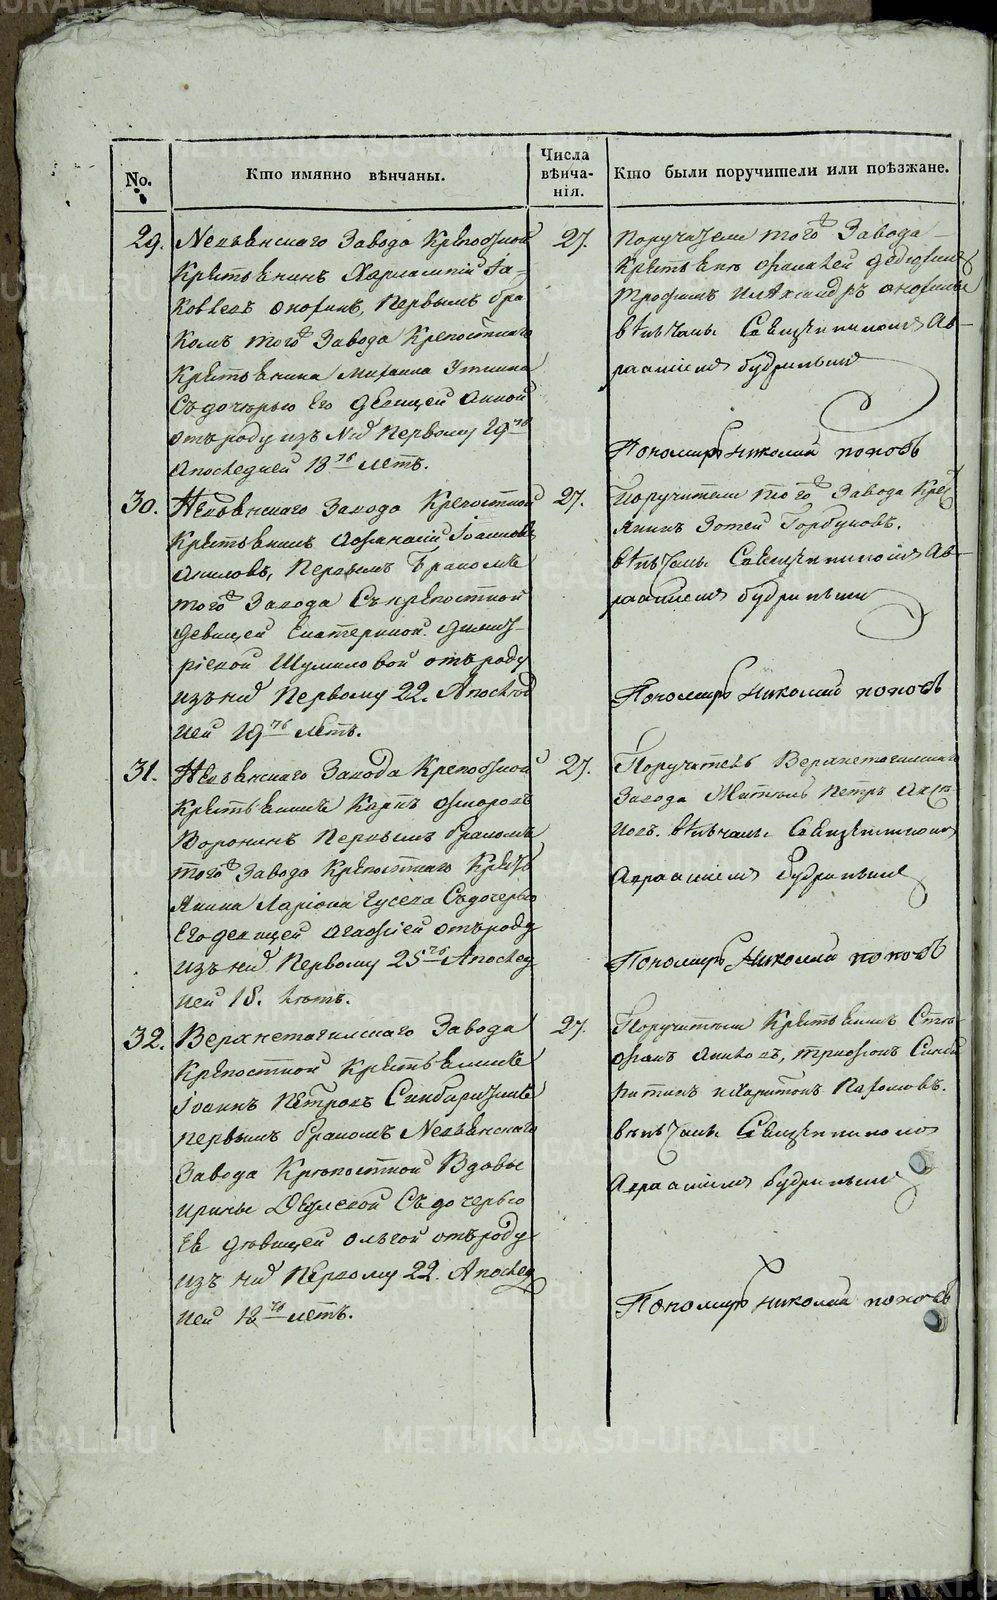 No.
Кто имянно вѣнчаны.
Числа
вѣнча-
нія.
Кто были поручители или поѣзжане.
29.
Невьянскаго Завода Крепостной
Крестьянинъ Харлампій Іа-
ковлевъ первымъ бра
комъ того Завода Крепостнаго
Крестьянина Михаила Уткина
Съ дочерью Его девицей Анной
отъ роду изъ них Первому 29
А последней 18 летъ.
27.
Поручители того Завода
Крестьяне
Трофимъ
вѣнчалъ Священникомъ Ав-
рааміемъ Будринымъ
Пономарь Николай поповъ
30.
Невьянскаго Завода Крепостной
Крестьянинъ Афанасій Іоанновъ
Первымъ Бракомъ
того Завода Съ крепостной
девицей Екатериной Димит-
ріевой Шумиловой отъ роду
изъ них Первому 22. А послед
ней 19 летъ.
27.
Поручители того Завода Крес
янинъ Зотей Горбуновъ.
вѣнчалъ Священникомъ Ав-
рааміемъ Будринымъ
Пономарь Николай поповъ
31.
Невьянскаго Завода Крепостной
Крестьянинъ Карпъ
Воронинъ Первымъ бракомъ
того Завода Крепостнаго Крест
янина Ларіона Гусева Съ дочерью
Его девицей Агафіей отъ роду
изъ них Первому 25 А послед
ней 18. летъ.
27.
Поручитель Верхнетагильскаго
Завода Житель Петръ
вѣнчалъ Священникомъ
Аврааміемъ Будринымъ
Пономарь Николай поповъ
32.
Верхнетагилскаго Завода
Крепостной Крестьянинъ
Іоаннъ Петровъ
первымъ бракомъ Невьянскаго
Завода Крѣпостной Вдовы
Ирины Съ дочерью
Ея дѣвицей Ольгой отъ роду
изъ них Первому 22. А послед
ней 18 летъ.
27.
Поручители Крестьянинъ Сте-
фанъ
и Харитонъ Пахомовъ.
вѣнчалъ Священникомъ
Аврааміемъ Будринымъ
Пономарь Николай поповъ
METRIKI.GASO-URAL.RU